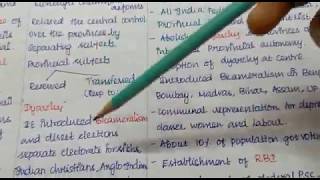 relaxed the central control
over the provinces by
separating subjects
Provincial subjects
Reserved Transferred
Dyarchy
It introduced Bicameralism
and direct elections
separate electorate for sikhs
Indian christians, Anglo Indian
All India Fede
Provincial
Abolished
provincial autonomy.
ption of dyarchy at centre
introduced Bicameralism in Beng
Bombay, Madras, Bihar, Assam, UP
communal representation for dep
classes women and labour.
About 10% of population got voting
Establishment of RBI